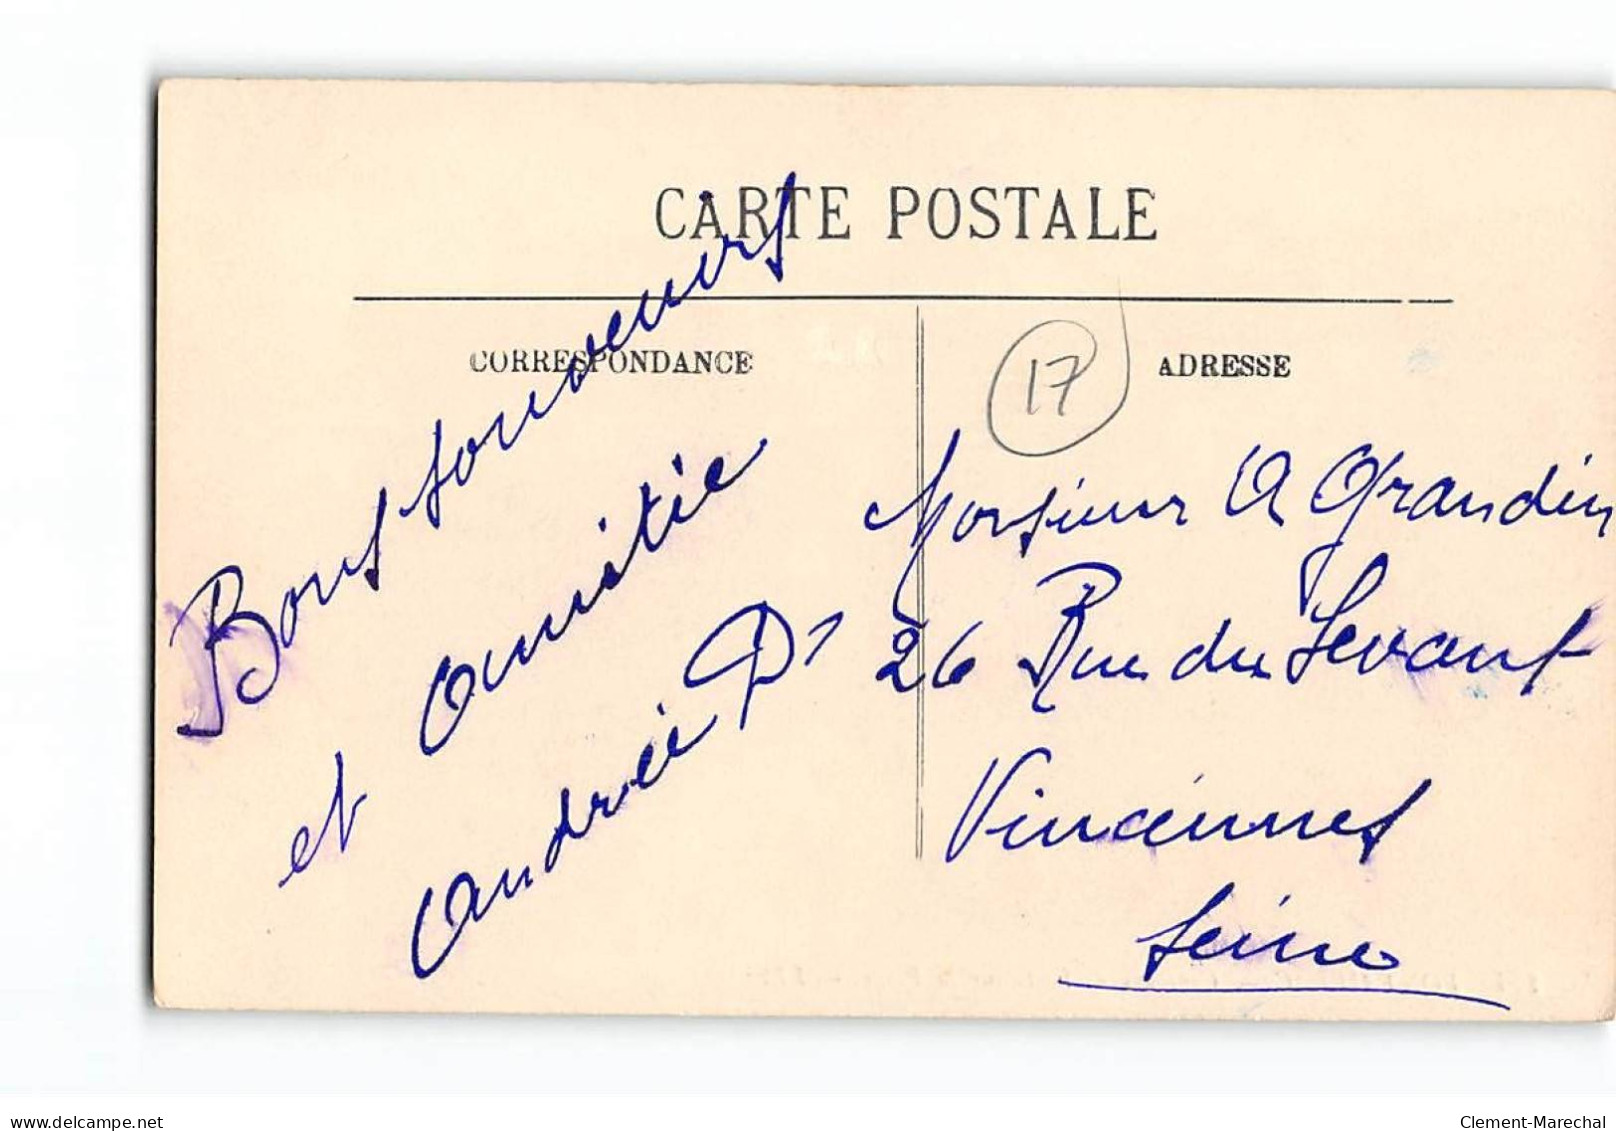 CARTE POSTALE
CORRESPONDANCE
ADRESSE
17
Bons souvenirs
et amitié
Andrée D
Monsieur A Grandin
26 Rue du Levant
Vincennes
Seine
www.delcampe.net
Clement-Marechal